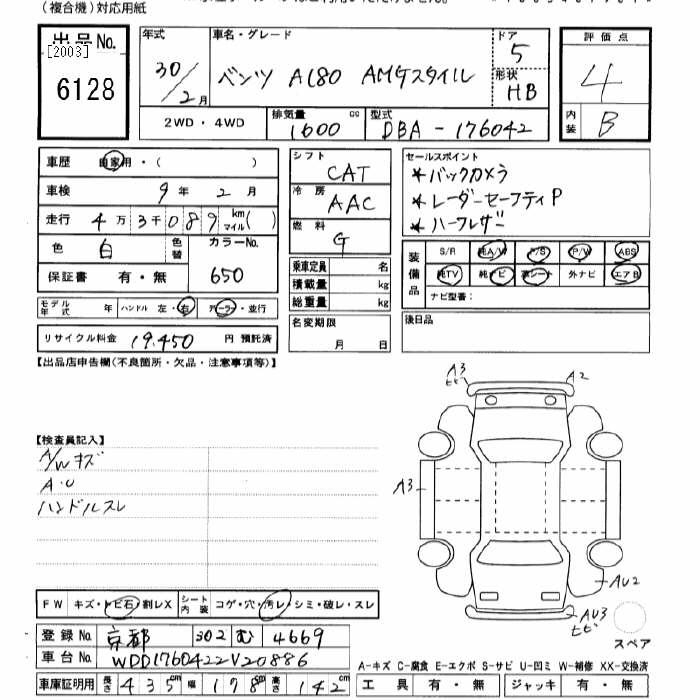 (複合機)対応用紙
出品No.
[2003]
6128
年式
30/2月
車名・グレード
ベンツ A180 AMGスタイル
ドア
5
形状
HB
評価点
4
内装
B
2WD・4WD
排気量
1600 cc
型式
DBA-176042
車歴 自家用・( )
車検 9年 2月
走行 4万3千089 km マイル( )
色 白 色替 カラーNo.
650
保証書 有・無
モデル年式 年 ハンドル 左・右 ディーラー・並行
リサイクル料金 19,450 円 預託済
シフト
CAT
冷房
AAC
燃料
G
乗車定員 名
積載量 kg
総重量 kg
名変期限
月 日
セールスポイント
*バックカメラ
*レーダーセーフティP
*ハーフレザー
装備品
S/R 純A/W P/S P/W ABS
純TV 純ナビ 革シート 外ナビ エアB
ナビ型番:
後日品
【出品店申告欄(不良箇所・欠品・注意事項等)】
【検査員記入】
A/Wキズ
A・U
ハンドルスレ
A3
ヒビ
A2
A3
AU2
AU3
ヒビ
スペア
FW キズ・トビ石・割レX シート内装 コゲ・穴・汚レ・シミ・破レ・スレ
登録No. 京都 302 む 4669
車台No. WDD1760422V20886
車庫証明用 長さ 435cm 幅 178cm 高さ 142cm
A-キズ C-腐食 E-エクボ S-サビ U-凹ミ W-補修 XX-交換済
工具 有・無 ジャッキ 有・無